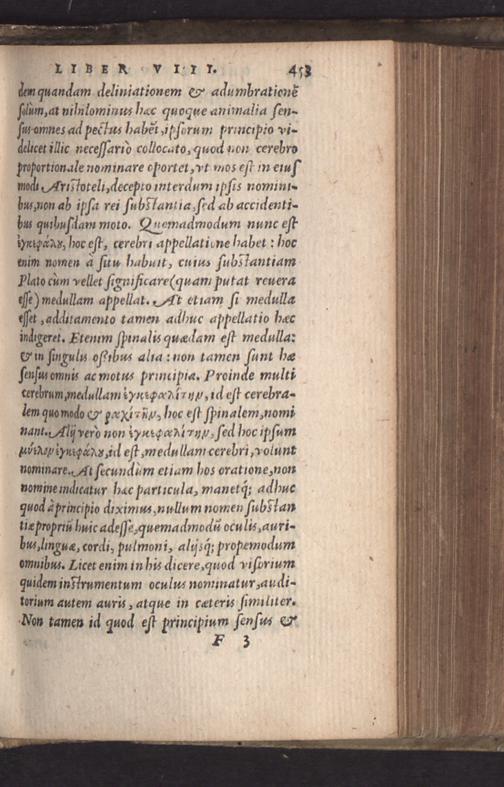 LIBER VIII. 453
dem quandam deliniationem & adumbrationē
solùm, at nihilominus hæc quoque animalia sen-
sus omnes ad pectus habēt, ipsorum principio vi-
delicet illic necessariò collocato, quod non cerebro
proportionale nominare oportet, vt mos est in eius
modi Aristoteli, decepto interdum ipsis nomini-
bus, non ab ipsa rei substantia, sed ab accidenti-
bus quibusdam moto. Quemadmodum nunc est
ἐγκεφάλου, hoc est, cerebri appellatione habet: hoc
enim nomen à situ habuit, cuius substantiam
Plato cùm vellet significare (quam putat reuera
esse) medullam appellat. At etiam si medulla
esset, additamento tamen adhuc appellatio hæc
indigeret. Etenim spinalis quædam est medulla:
& in singulis ossibus alia: non tamen sunt hæ
sensus omnis ac motus principia. Proinde multi
cerebrum, medullam ἐγκεφαλίτην, id est cerebra-
lem quomodo & ῥαχίτην, hoc est spinalem, nomi
nant. Alij verò non ἐγκεφαλίτην, sed hoc ipsum
μύελον ἐγκεφάλου, id est, medullam cerebri, volunt
nominare. At secundùm etiam hos oratione, non
nomine indicatur hæc particula, manetq; adhuc
quod à principio diximus, nullum nomen substan
tiæ propriũ huic adesse, quemadmodũ oculis, auri-
bus, linguæ, cordi, pulmoni, alijsq; propemodum
omnibus. Licet enim in his dicere, quod visorium
quidem instrumentum oculus nominatur, audi-
torium autem auris, atque in cæteris similiter.
Non tamen id quod est principium sensus &
F 3